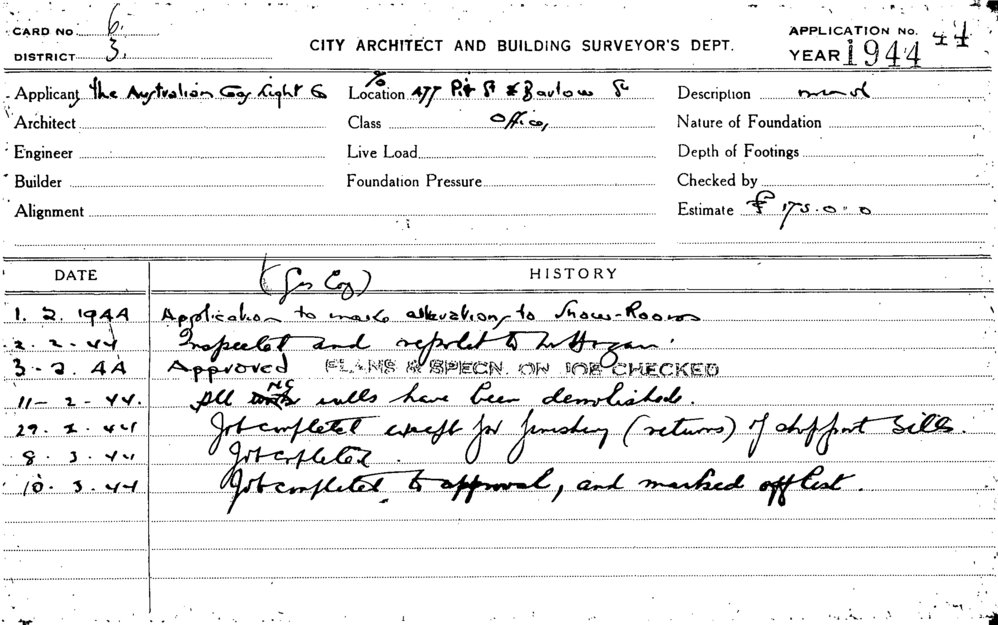 CARD No. 6.
DISTRICT 3.
CITY ARCHITECT AND BUILDING SURVEYOR'S DEPT.
APPLICATION No. 44
YEAR 1944
Applicant The Australian Gas Light Co
Location 477 Pitt St & Barlow St
Description
Architect
Class Office,
Nature of Foundation
Engineer
Live Load
Depth of Footings
Builder
Foundation Pressure
Checked by
Alignment
Estimate £ 175.0.0
DATE
HISTORY
(Gas Coy)
1. 2. 1944 Application to make alterations to Show-Rooms
2. 2. 44 Inspected and reported to Mr Hogan.
3 - 2. 44 Approved PLANS & SPECN. ON JOB CHECKED
11 - 2 - 44. All walls have been demolished.
29. 2. 44 Job completed except for finishing (returns) of shopfront sills.
8. 3. 44 Job completed.
10. 3. 44 Job completed to approval, and marked off list.